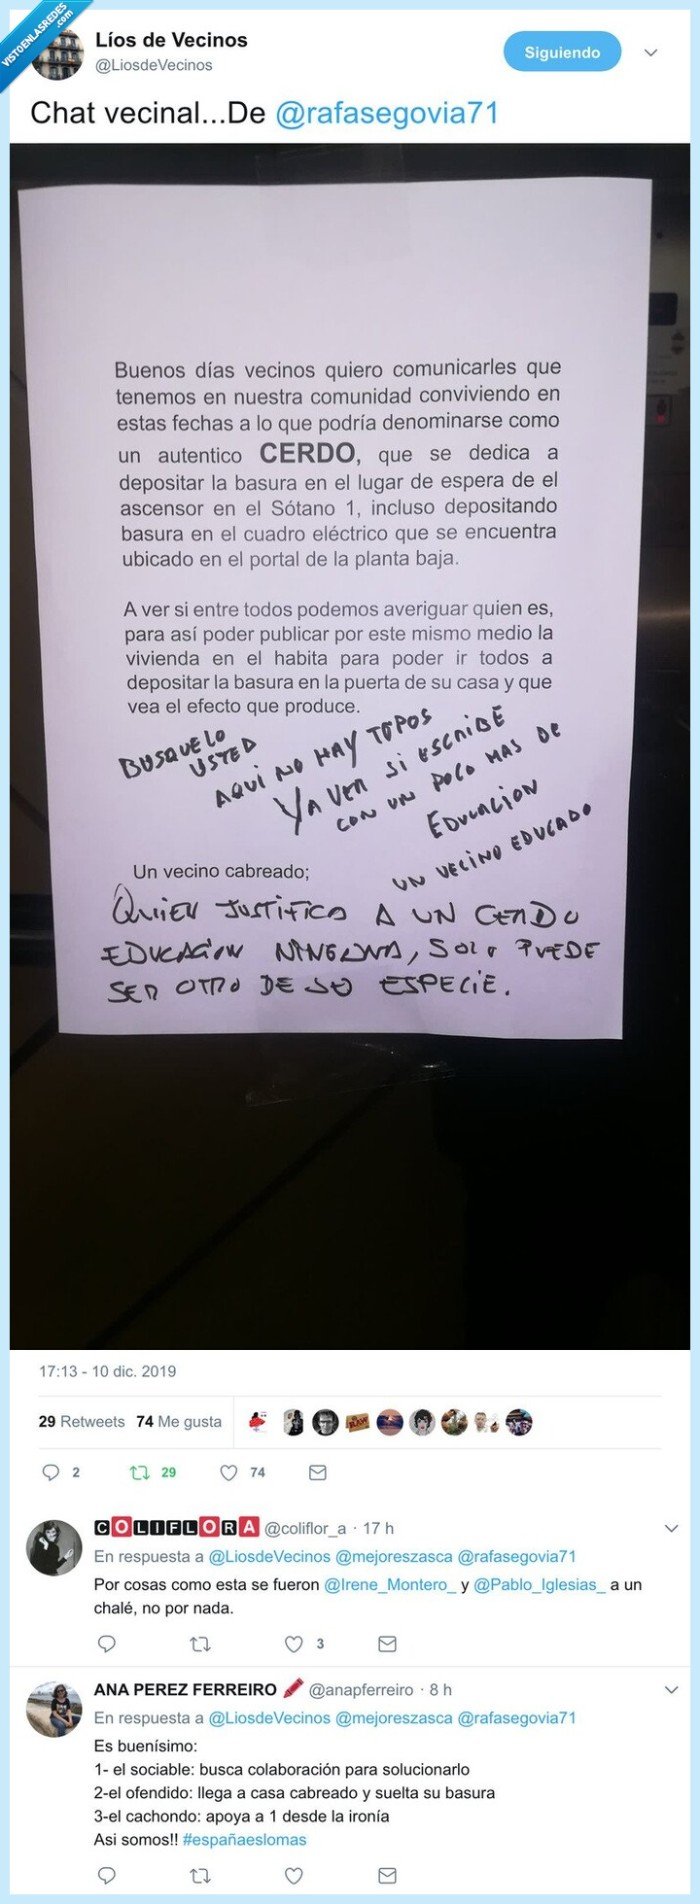 VISTOENLASREDES
.com
Líos de Vecinos
@LiosdeVecinos
Siguiendo
Chat vecinal...De @rafasegovia71
Buenos días vecinos quiero comunicarles que
tenemos en nuestra comunidad conviviendo en
estas fechas a lo que podría denominarse como
un autentico CERDO, que se dedica a
depositar la basura en el lugar de espera de el
ascensor en el Sótano 1, incluso depositando
basura en el cuadro eléctrico que se encuentra
ubicado en el portal de la planta baja.
A ver si entre todos podemos averiguar quien es,
para así poder publicar por este mismo medio la
vivienda en el habita para poder ir todos a
depositar la basura en la puerta de su casa y que
vea el efecto que produce.
BUSQUELO
USTED
AQUI NO HAY TOPOS
Y A VER SI ESCRIBE
CON UN POCO MAS DE
EDUCACION
UN VECINO EDUCADO
Un vecino cabreado;
QUIEN JUSTIFICA A UN CERDO
EDUCACIÓN NINGUNA, SOLO PUEDE
SER OTRO DE SU ESPECIE.
17:13 - 10 dic. 2019
29 Retweets 74 Me gusta
2 29 74
COLIFLORA @coliflor_a · 17 h
En respuesta a @LiosdeVecinos @mejoreszasca @rafasegovia71
Por cosas como esta se fueron @Irene_Montero_ y @Pablo_Iglesias_ a un
chalé, no por nada.
3
ANA PEREZ FERREIRO @anapferreiro · 8 h
En respuesta a @LiosdeVecinos @mejoreszasca @rafasegovia71
Es buenísimo:
1- el sociable: busca colaboración para solucionarlo
2-el ofendido: llega a casa cabreado y suelta su basura
3-el cachondo: apoya a 1 desde la ironía
Asi somos!! #españaeslomas